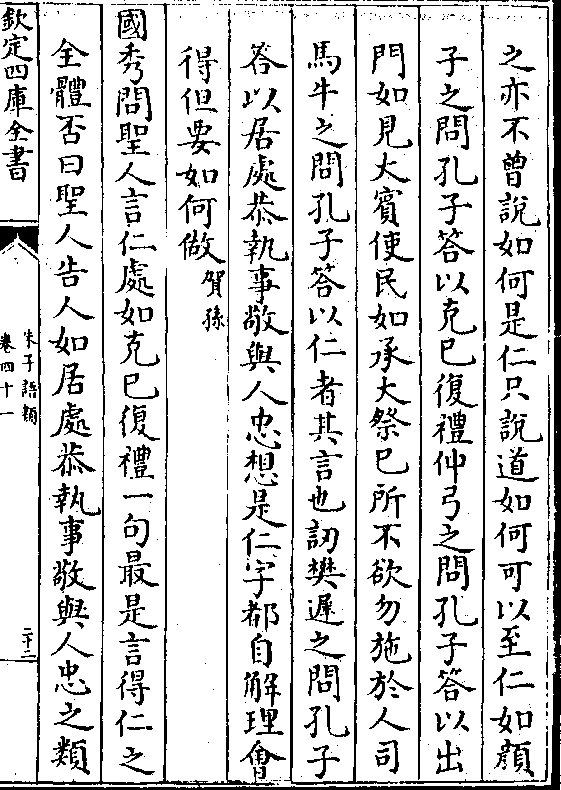 之亦不曾說如何是仁只說道如何可以至仁如顔
子之問孔子答以克已復禮仲弓之問孔子答以出
門如見大賓使民如承大祭已所不欲勿施於人司
馬牛之問孔子答以仁者其言也訒樊遲之問孔子
答以居處恭執事敬與人忠想是仁字都自解理會
得但要如何做賀孫
國秀問聖人言仁處如克已復禮一句最是言得仁之
全體否曰聖人告人如居處恭執事敬與人忠之類
欽定四庫全書
朱子語類
卷四十一
二十三